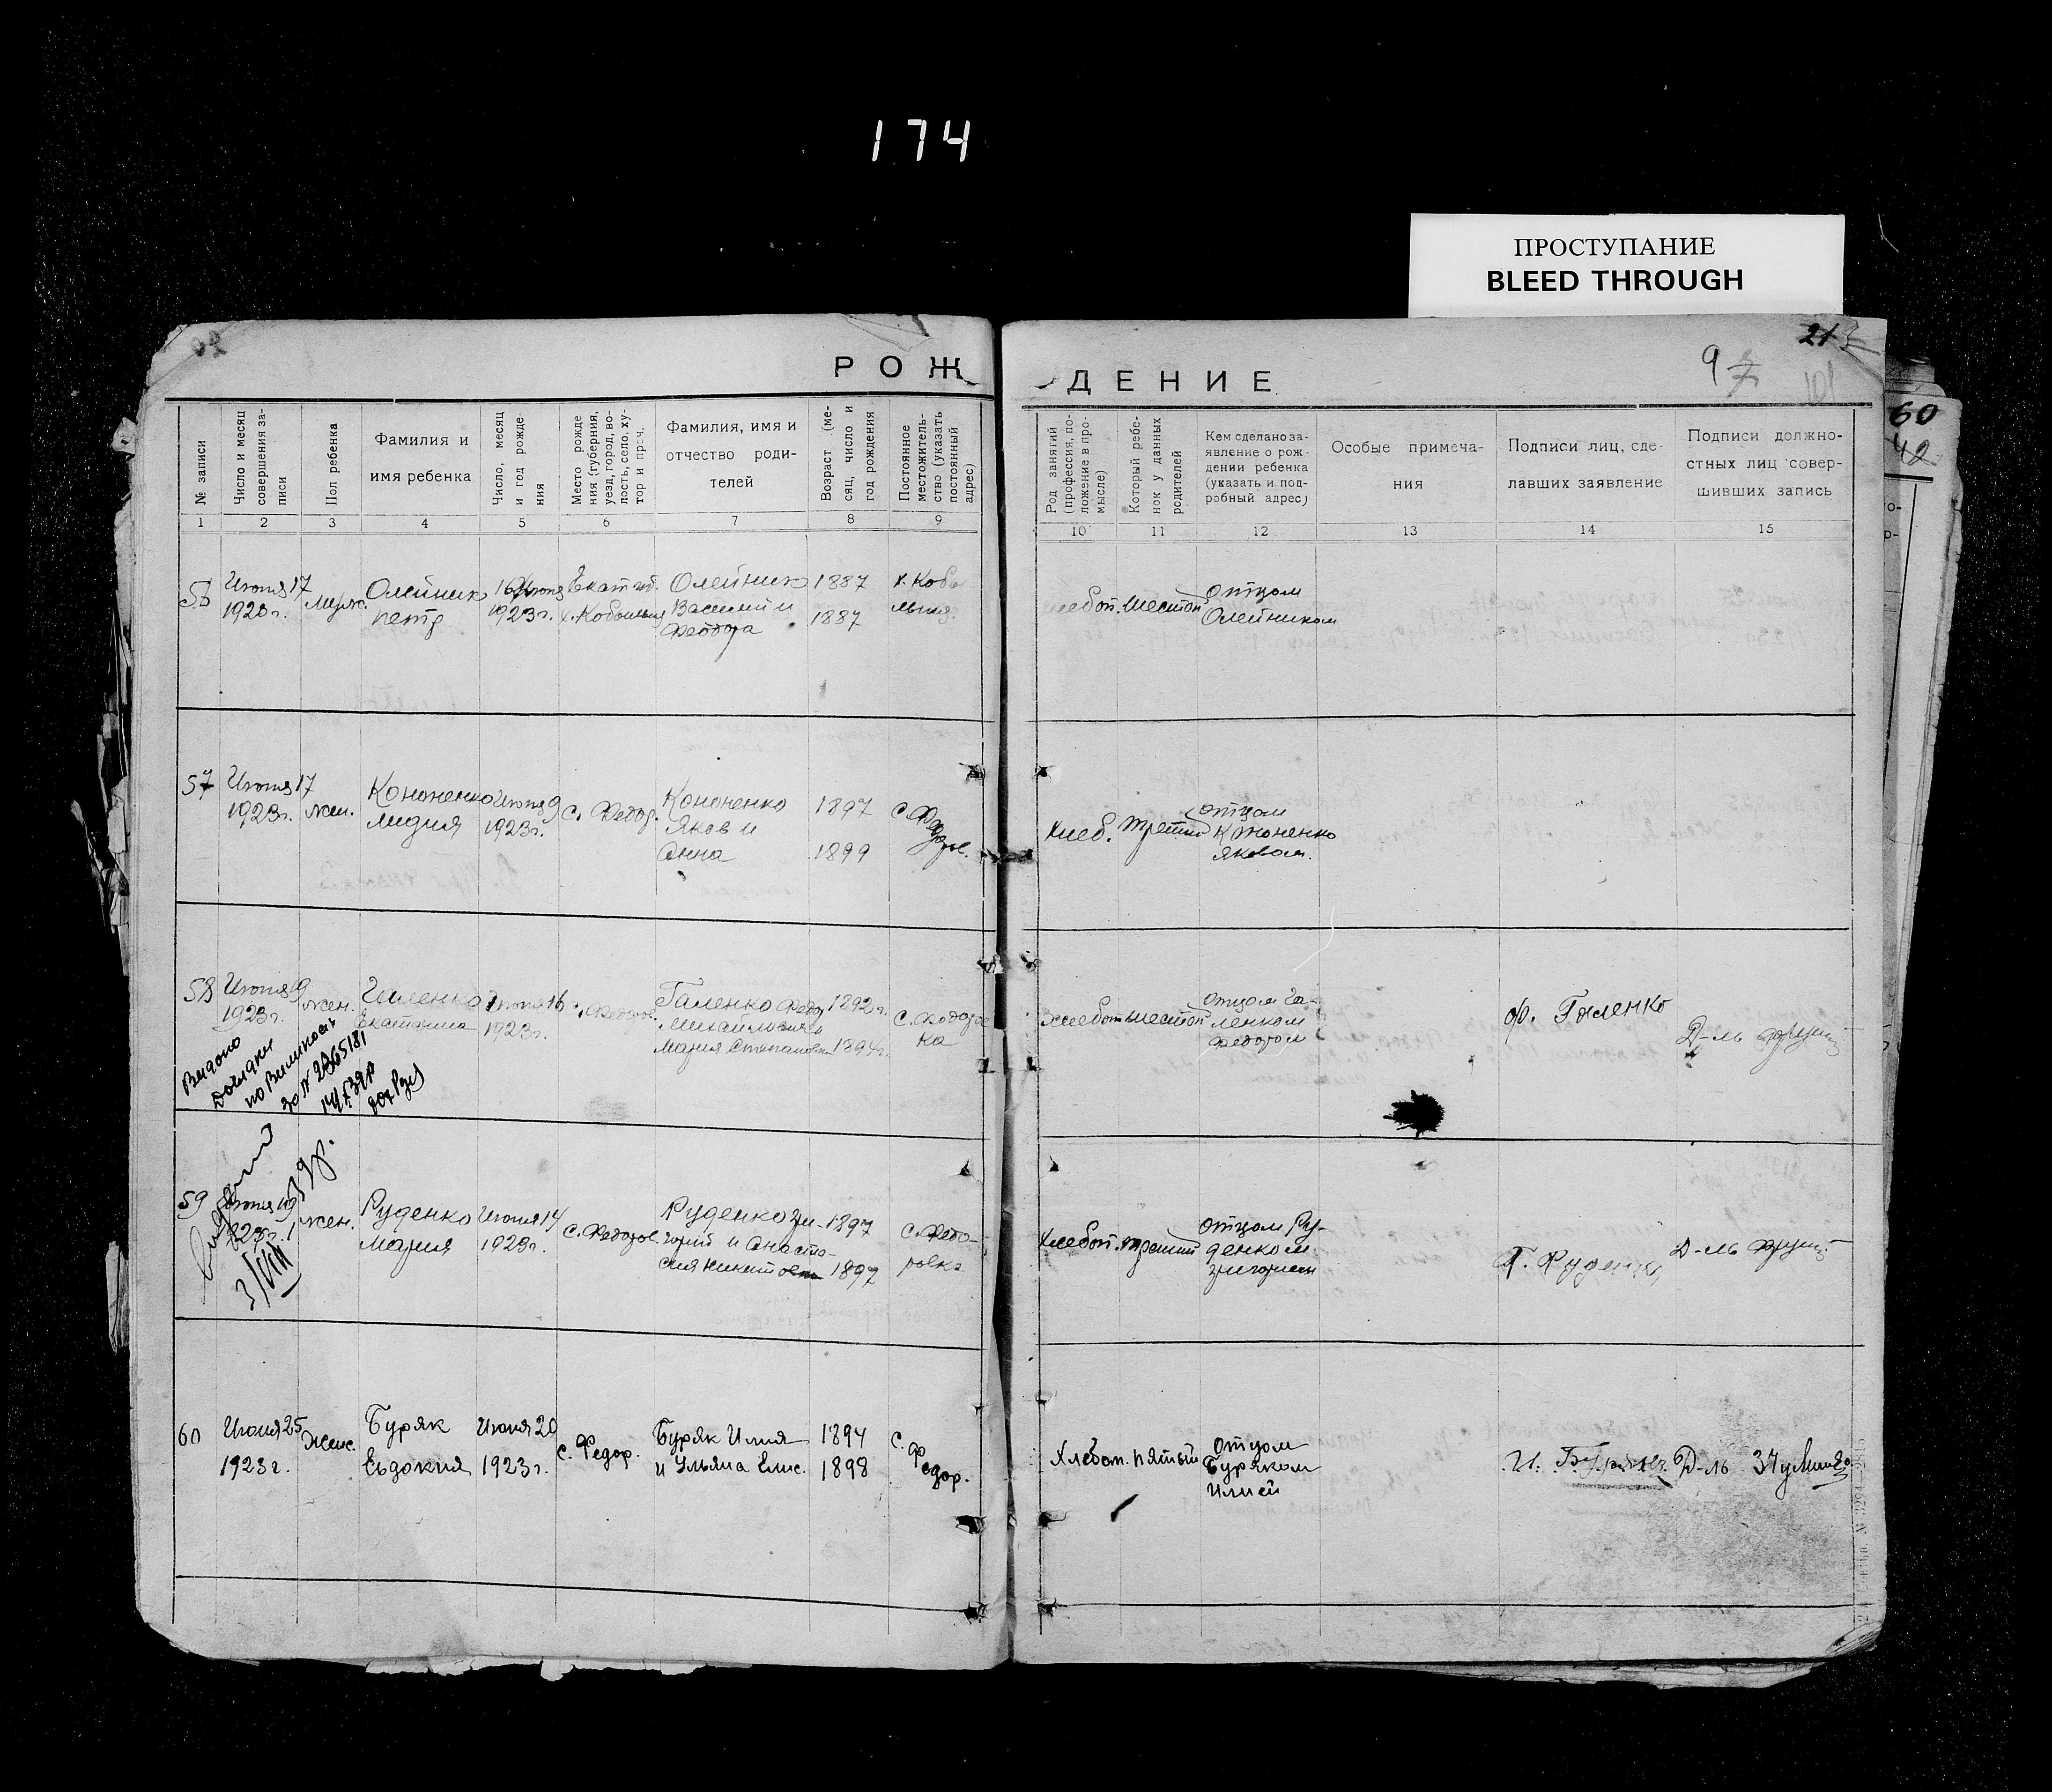 174
ПРОСТУПАНИЕ
BLEED THROUGH
21
9
РОЖДЕНИЕ
60
42
№ записи
Число и месяц совершения записи
Пол ребенка
Фамилия и
имя ребенка
Число, месяц и год рождения
Место рождения (губерния, уезд, город, волость, село, хутор и проч.
Фамилия, имя и
отчество роди-
телей
Возраст (месяц, число и год рождения
Постоянное местожительство (указать постоянный адрес)
Род занятий (профессия, положение в промысле)
Который ребенок у данных родителей
Кем сделано за-
явление о рож-
дении ребенка
(указать и под-
робный адрес)
Особые примеча-
ния
Подписи лиц, сде-
лавших заявление
Подписи должно-
стных лиц совер-
шивших запись
1 2 3 4 5 6 7 8 9 10 11 12 13 14 15
56
Июня 17
1923г.
Муж.
Олейник
Петр
16 Июня
1923г.
Екат.
х. Кобыльня
Олейник
Василий и
Феодора
1887
1887
х. Кобы
льня.
Хлебоп.
Шестой
Отцом
Олейником
57
Июня 17
1923г.
Жен.
Кононенко
Лидия
Июня 9
1923г.
с. Федор.
Кононенко
Яков и
Анна
1897
1899
с. Федор.
Хлеб.
Третий
Отцом
Кононенко
Яковом.
58
Июня 19
1923г.
Жен.
Галенко
Екатерина
Июня 16
1923г.
с. Федоров.
Галенко Федор
Михайлович
Мария Степановна
1892г.
1894г.
с. Федоров
ка
Хлебоп
Шестой
Отцом Га-
ленком
Федором
Ф. Галенко
Д-ль
Видано
59
Июня 19
1923г.
Жен.
Руденко
Мария
Июня 14
1923г.
с. Федоров.
Руденко Гри-
горий и Анаста-
сия Никитовна
1897
1897
с. Федо-
ровка
Хлебоп.
третий
Отцом Ру-
денком
Григорием
Г. Руденко
Д-ль
3/VIII
60
Июня 25
1923г.
Женс.
Буряк
Евдокия
Июня 20
1923г.
с. Федор.
Буряк Илия
и Ульяна Елис.
1894
1898
с.
Федор.
Хлебоп.
пятый
Отцом
Буряком
Илией
И. Буряк
Д-ль